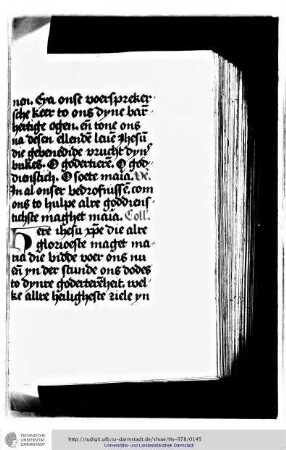 nen. Eya onse voerspreker-
sche keer to ons dyne bar-
hertige ogen. en̄ tone ons
na desen ellende leue̅ Jhesu̅
die gebenedide vrucht dyns
bukes. O godertiere̅. O god-
dienstich. O soete maria. Vs.
In al onser bedrofnisse, com
ons to hulpe alre goddiens-
tichste maghet maria. Coll.
Here ihesu xp̅e die alre
glorioeste maget ma-
ria die bidde voer ons nu
en̄ yn der stunde ons dodes
to dynre godertiere̅heit. wel-
ke allre hailigheste ziele yn
TECHNISCHE
UNIVERSITÄT
DARMSTADT
http://tudigit.ulb.tu-darmstadt.de/show/Hs-978/0145
Universitäts- und Landesbibliothek Darmstadt